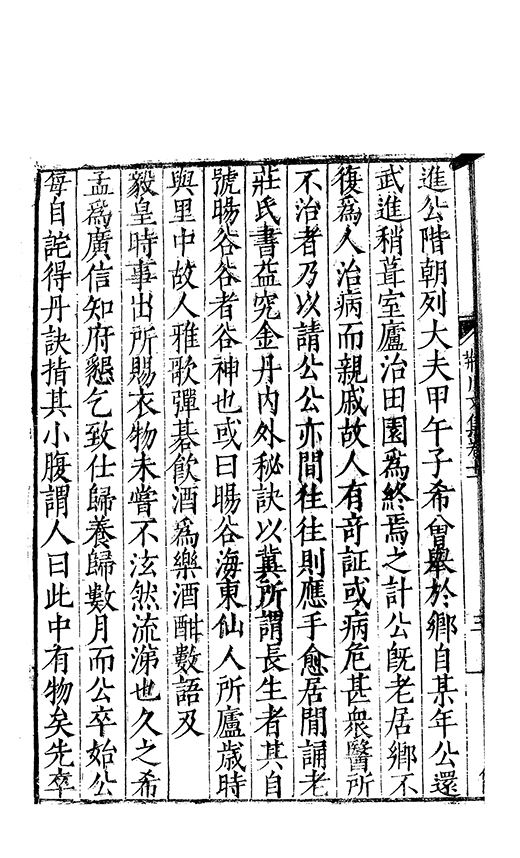 進公階朝列大夫甲午子希曾舉於鄉自某年公還
武進稍葺室廬治田園爲終焉之計公既老居鄉不
復爲人治病而親戚故人有奇証或病危甚衆醫所
不治者乃以請公公亦間往往則應手愈居閒誦老
莊氏書益究金丹内外秘訣以冀所謂長生者其自
號暘谷谷者谷神也或曰暘谷海東仙人所廬歲時
與里中故人雅歌彈碁飲酒爲樂酒酣數語及
毅皇時事出所賜衣物未嘗不泫然流涕也久之希
孟爲廣信知府懇乞致仕歸養歸數月而公卒始公
每自詫得丹訣指其小腹謂人曰此中有物矣先卒